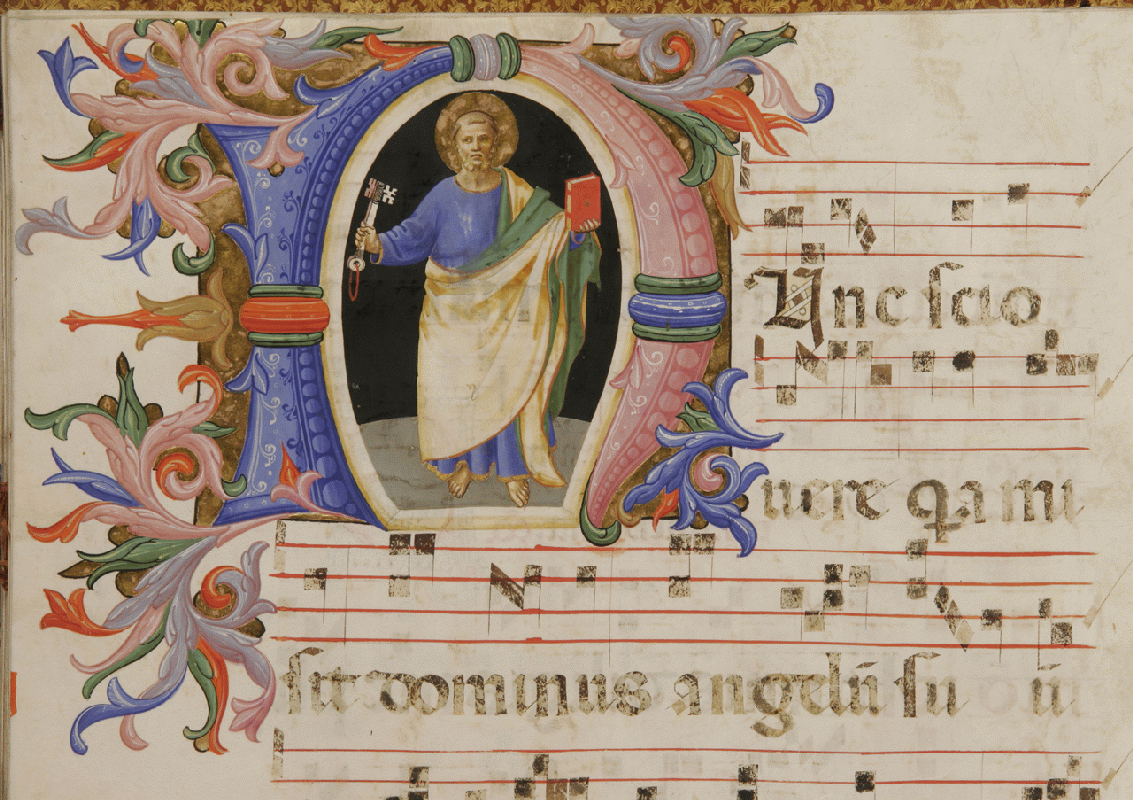 Nunc scio
uere q̃a mi
sit dominus angelũ su ũ